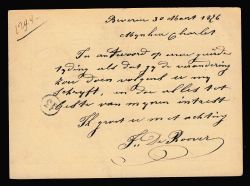 Beveren 30 Maart 1876
Mynheer Charlet
In antwoord op uwe geerde
tyding als dat gy de verandering
zou doen volgens u my
schryft, en dit alles tot
beste van mynen intrest
Ik groet u met achting
Fs De Roover